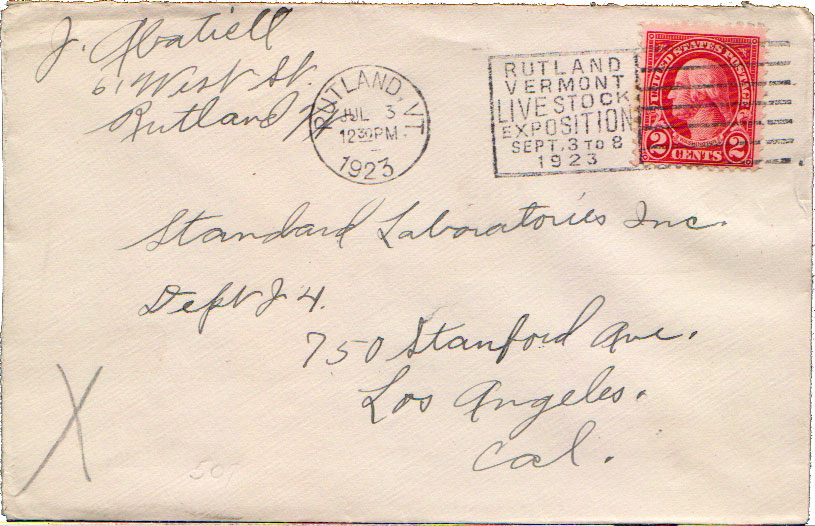 J. Abatiell
61 West St.
Rutland Vt
RUTLAND, VT.
JUL 3
12 30 PM
1923
RUTLAND
VERMONT
LIVE STOCK
EXPOSITION
SEPT. 3 TO 8
1923
UNITED STATES POSTAGE
2 CENTS 2
Standard Laboratories Inc.
Dept J 4.
750 Stanford Ave.
Los Angeles.
Cal.
X
50